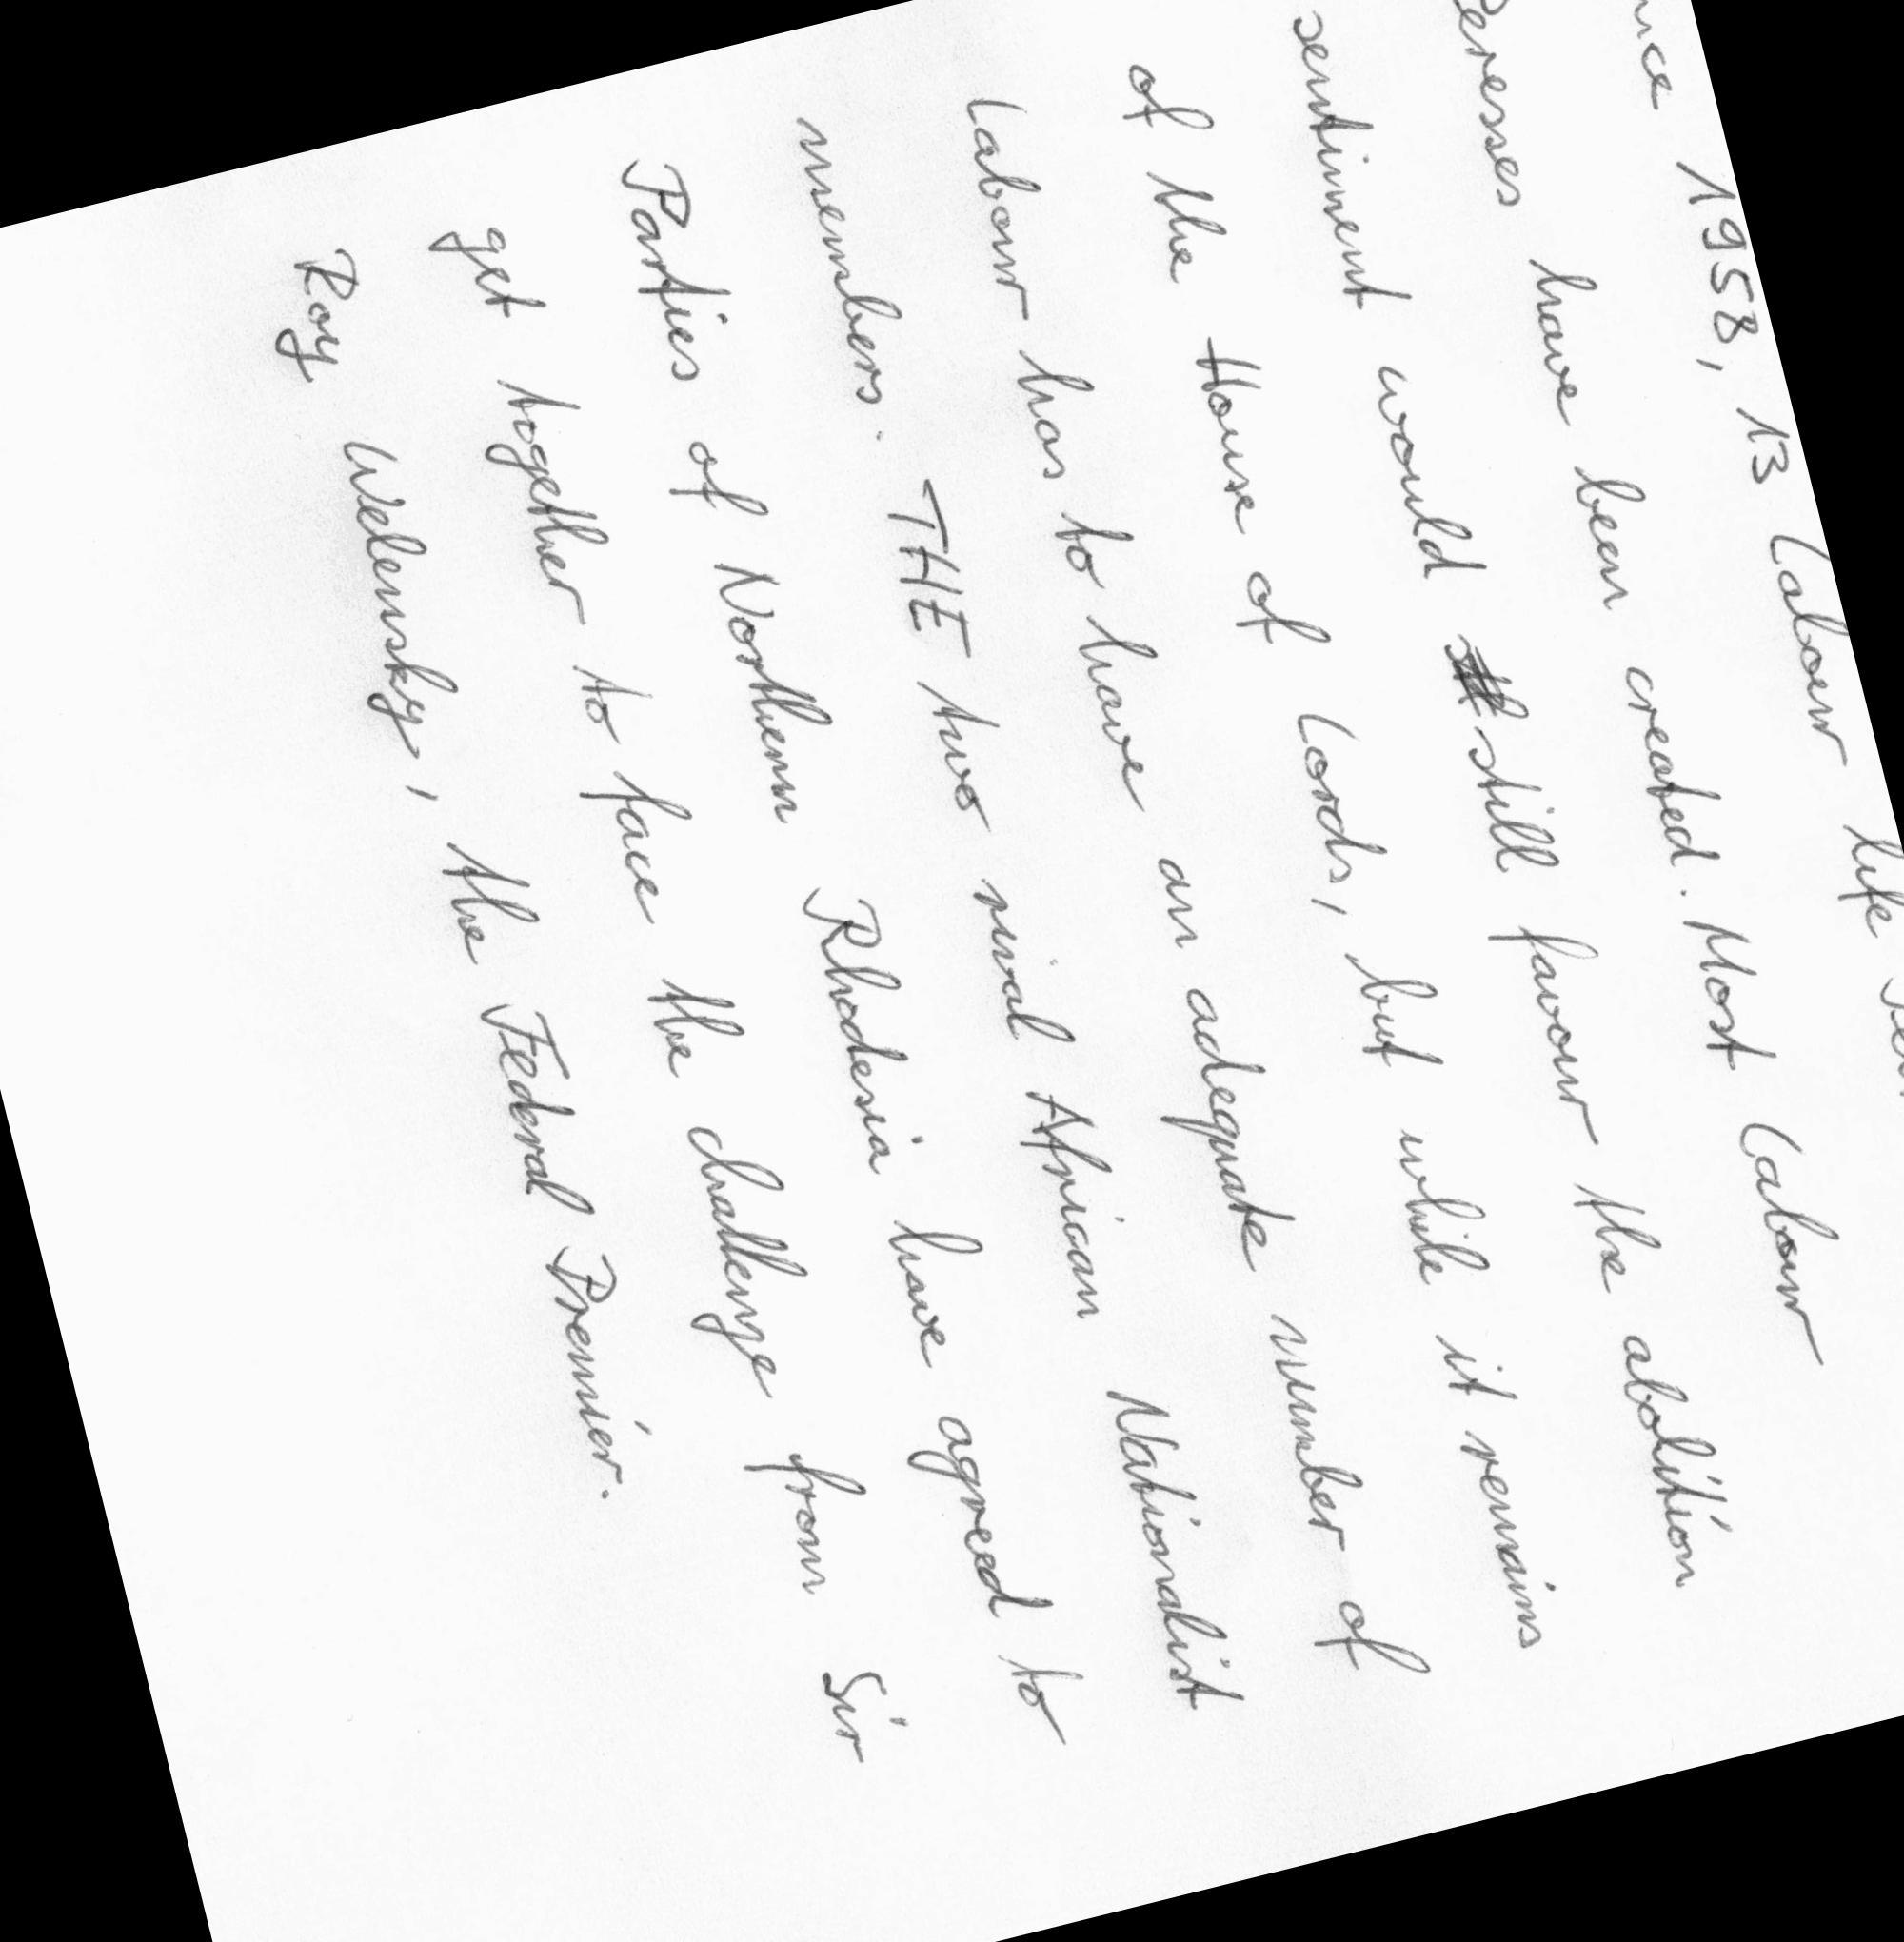 1958, 13 Labour life
have been created. Most Labour
sentiment would still favour the abolition
of the House of Lords, but while it remains
Labour has to have an adequate number of
members. THE two rival African Nationalist
Parties of Northern Rhodesia have agreed to
get together to face the challenge from Sir
Roy Welensky, the Federal Premier.